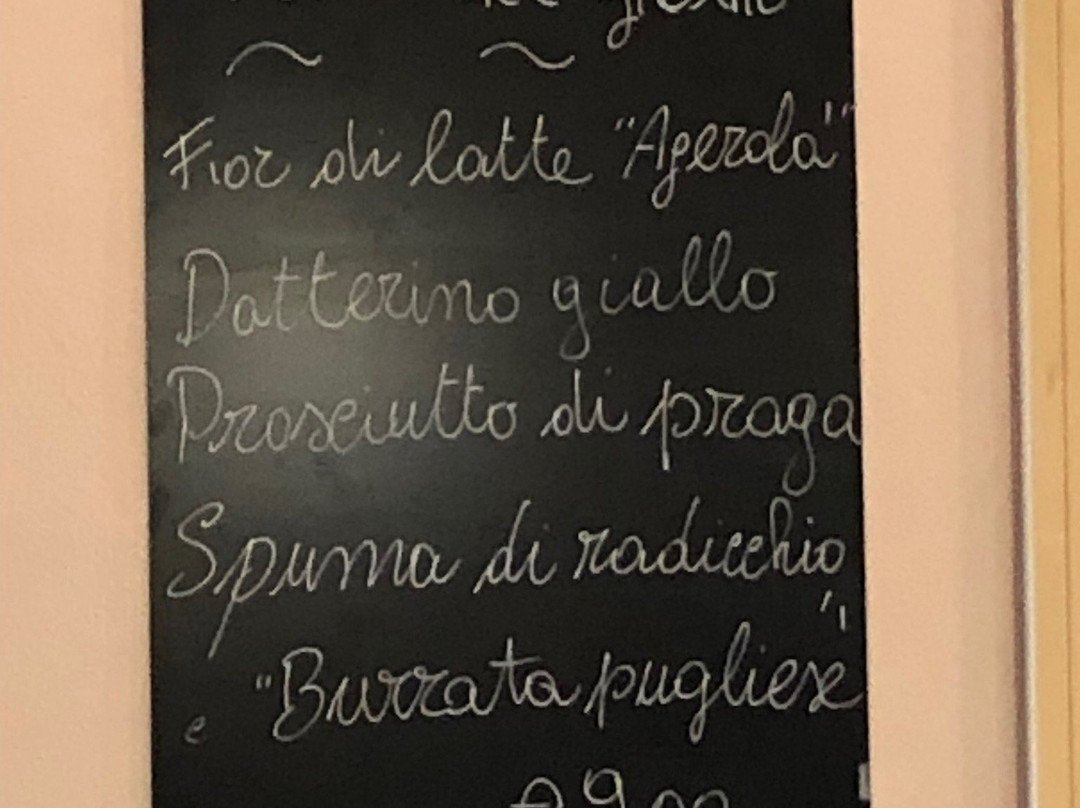 Fior di latte "Agerola"
Datterino giallo
Prosciutto di praga
Spuma di radicchio
e "Burrata pugliese"